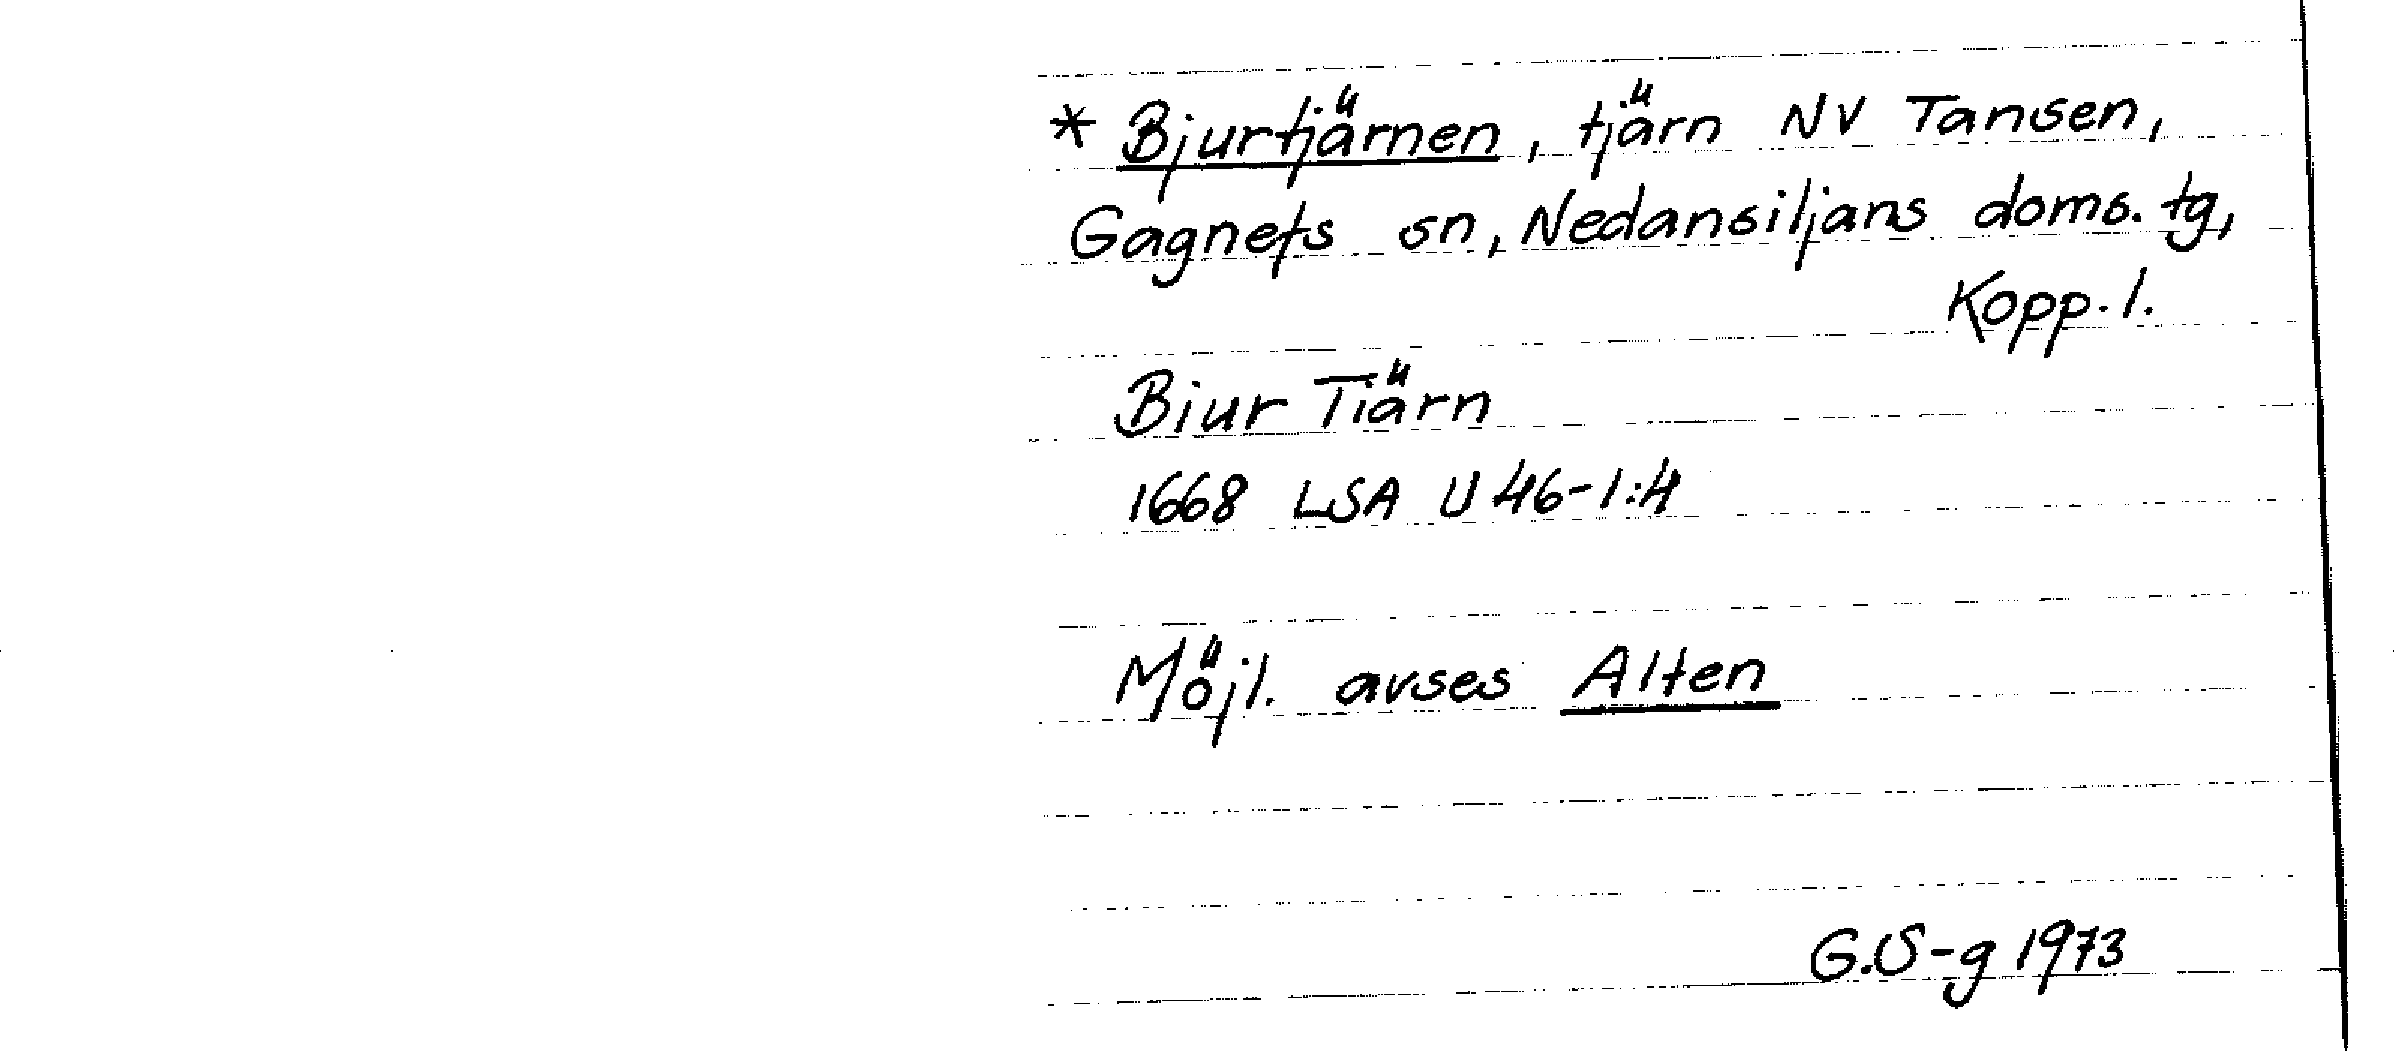 * Bjurtjärnen, tjärn NV Tansen,
Gagnefs sn, Nedansiljans doms. tg,
Kopp. l.
Biur Tiärn
1668 LSA U 46-1:4
Möjl. avses Alten
G.S-g 1973